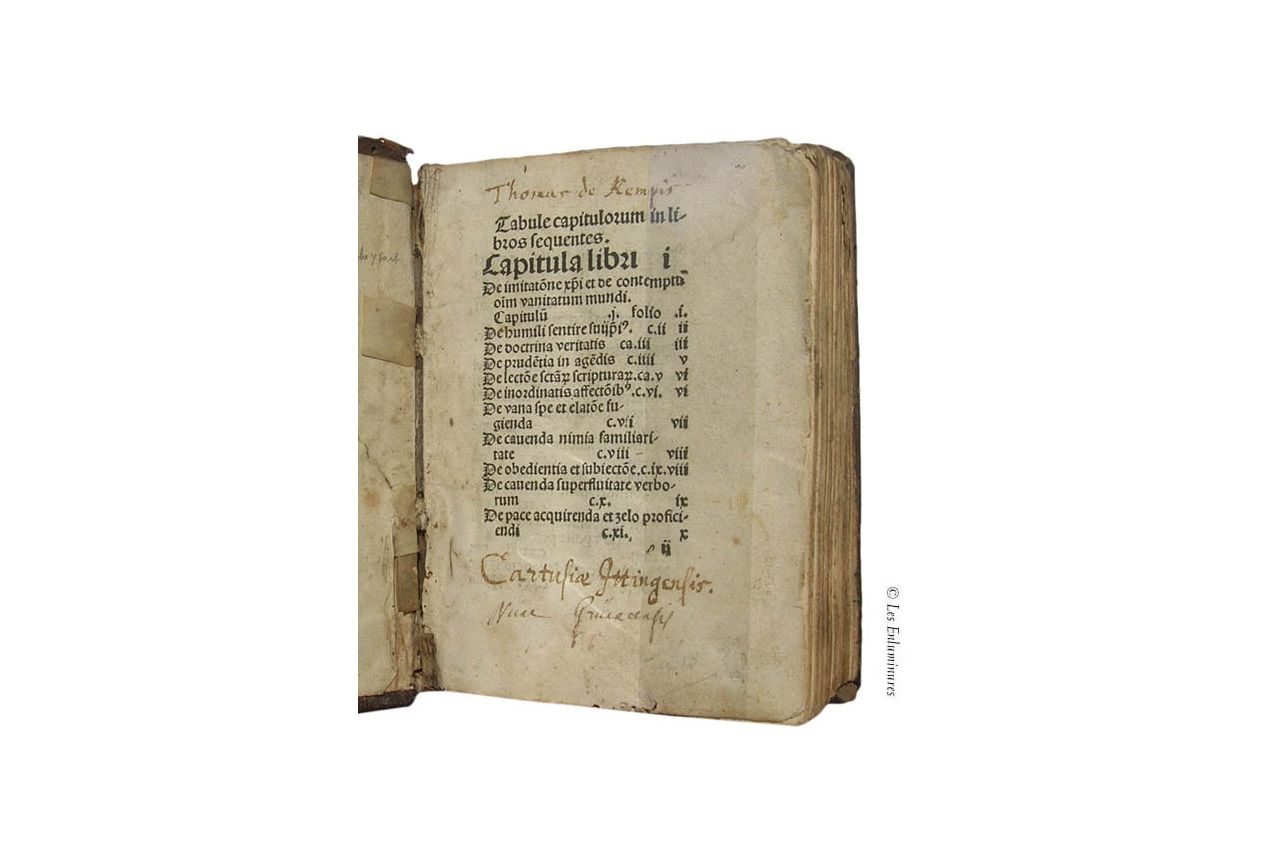 Thomas de Kempis
Tabule capitulorum in li-
bros ſequentes.
Capitula libri i
De imitatōne xp̄i et de contemptu
oīm vanitatum mundi.
Capitulū .j. folio .i.
De humili ſentire ſuijp̄iꝰ. c.ii ii
De doctrina veritatis ca.iii iii
De prudētia in agēdis c.iiii v
De lectōe ſctāꝝ ſcripturaꝝ.ca.v vi
De inordinatis affectōibꝰ.c.vi. vi
De vana ſpe et elatōe fu-
gienda c.vii vii
De cauenda nimia familiari-
tate c.viii viii
De obedientia et ſubiectōe.c.ix.viii
De cauenda ſuperfluitate verbo-
rum c.x. ix
De pace acquirenda et zelo profici-
endi c.xi. x
ii
Cartusiæ Ittingensis.
Nunc
© Les Enluminures